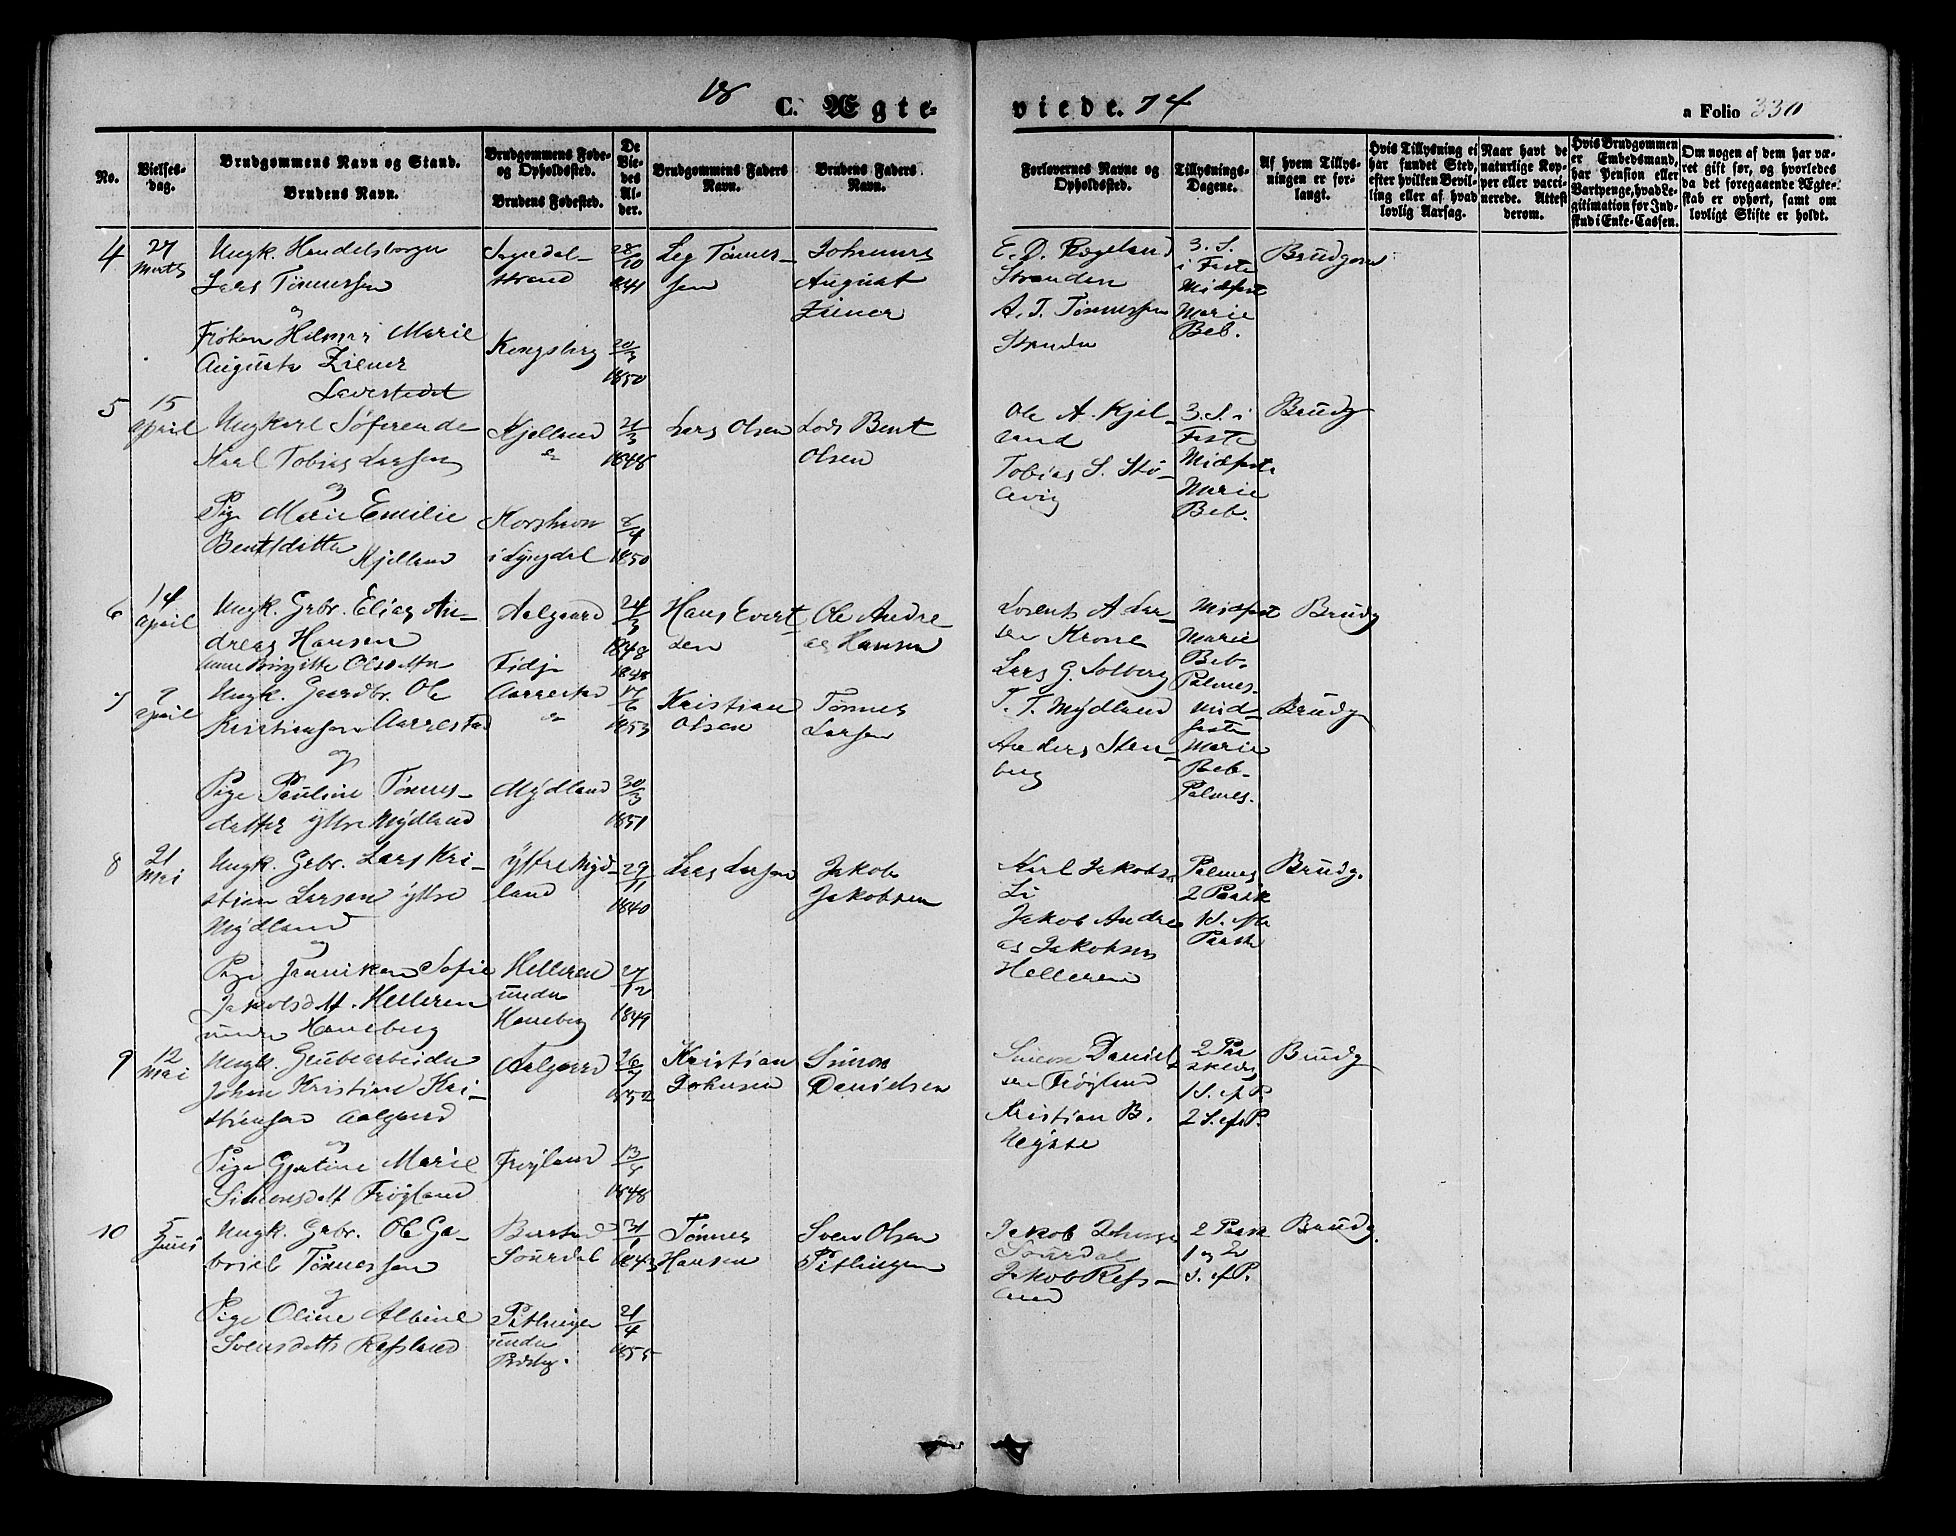 18
C. Ægte-
viede. 74
a Folio 330
No.
Vielses-
dag.
Brudgommens Navn og Stand.
Brudens Navn.
Brudgommens Føde-
og Opholdssted.
Brudens Fødested.
De
Vie-
des
Al-
der.
Brudgommens Faders
Navn.
Brudens Faders
Navn.
Forlovernes Navne og
Opholdssted.
Tillysnings-
Dagene.
Af hvem Tillys-
ningen er for-
langt.
Hvis Tillysning ei
har fundet Sted,
efter hvilken Bevil-
ling eller af hvad
lovlig Aarsag.
Naar havt de
naturlige Kop-
per eller vacci-
nerede. Attest
derom.
Hvis Brudgommen
er Embedsmand,
har Pension eller
Vartpenge, hvad Le-
gitimation for Ind-
skud i Enke-Cassen.
Om nogen af dem har væ-
ret gift før, og hvorledes
da det foregaaende Ægte-
skab er ophørt, samt om
lovligt Skifte er holdt.
4
27
Marts
Ungk. Handelsborger
Lars Tønnessen
og
Frøken Helmar Marie
Augusta Ziener
Sogndal-
strand
Kongsberg
28/10
1841
20/3
1850
Tønnes-
sen
Johannes
August
Ziener
E. D. Regeland
Stranden
A. T. Tønnessen
3. S.
i Faste
Midfaste
Marie
Beb.
Brudgom
5
15
April
Ungkarl Søfarende
Karl Tobias Larsen
og
Pige Marie Emilie
Bentsdatter
Kjelland
Kjelland
i Lyngdal
21/3
1848
8/4
1850
Lars Olsen
Lods Bent
Olsen
Ole A. Kjel-
land
Tobias S. Stø-
3. S. i
Faste
Midfaste
Marie
Beb.
Brudg
6
14
April
Ungk. Grbr. Elias An-
dreas Hansen
Anne Birgitte Olsdatter
Aalgaard
Fidje
24/3
1848
1848
Hans Evert-
sen
Ole Andre
as Hansen
Lorents A Lar
sen Krone
Lars G. Solberg
Midfaste
Marie
Beb.
Palmes.
Brudg
7
9
April
Ungk. Gaardbr. Ole
Kristiansen Aarrestad
og
Pige Pauline Tønnes-
datter ytre Mydland
Aarrestad
Mydland
17/6
1853
30/3
1851
Kristian
Olsen
Tønnes
Larsen
T. T. Mydland
Anders Sten-
berg
Mid-
faste
Marie
Beb-
Palmes.
Brudg
8
21
Mai
Ungk. Grbr. Lars Kri-
stian Larsen ytre
Mydland
og
Pige Janniken Sofie
Jakobsdatt. Helleren
under Haneberg
Ytre Myd-
land
Helleren
under
Haneberg
29/11
1840
27/12
1849
Lars Larsen
Jakob
Jakobsen
Karl Jakobs.
Li
Jakob Andre
as Jakobsen
Helleren
Palmes
2 Paask
1 S. efter
Paask
Brudg.
9
12
Mai
Ungk. Grubearbeider
Johan Kristine Kri-
stiansen Aalgaard
og
Pige Gjertine Marie
Simonsdatt Frøyland
Aalgaard
Frøyland
26/7
1852
13/4
1848
Kristian
Johnsen
Simon
Danielsen
Simon Daniel
sen Frøyland
Kristian B.
2 Paa
skedag
1 S. ef P.
2 S. ef P.
Brudg
10
5
Juni
Ungk. Grbr. Ole Ga-
briel Tønnessen
og
Pige Oline Albine
Svensdatt Refsland
Sourdal
Pitlingen
under
31/1
1843
21/4
1855
Tønnes
Hansen
Sven Olsen
Pitlingen
Jakob
Sourdal
Jakob Refs-
land
2 Paask
1 og 2
S. ef P.
Brudg.